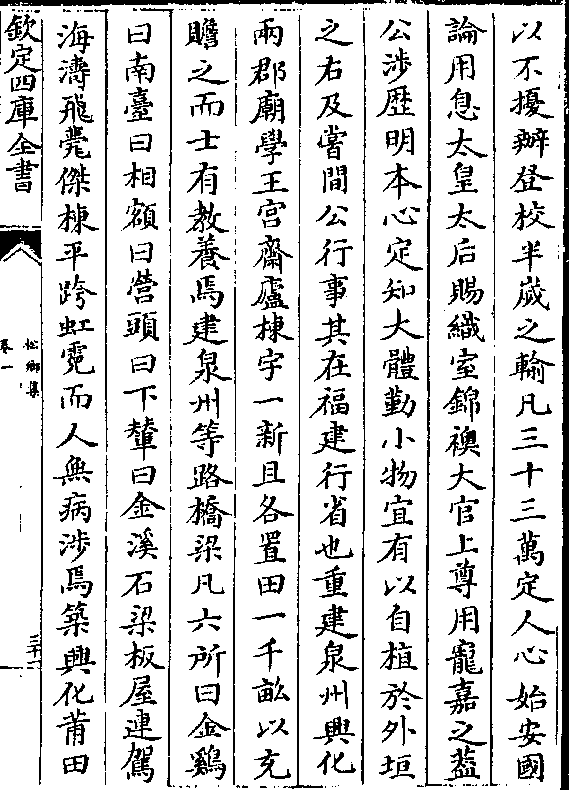 以不擾辦登校半歲之輸凡三十三萬定人心始安國
論用息太皇太后賜織室錦襖大官上尊用寵嘉之葢
公渉歴明本心定知大體勤小物宜有以自植於外垣
之右及嘗間公行事其在福建行省也重建泉州興化
兩郡廟學王宫齋廬棟宇一新且各置田一千畝以充
贍之而士有教養焉建泉州等路橋梁凡六所曰金鷄
曰南臺曰相額曰營頭曰下輦曰金溪石梁板屋連駕
海濤飛甍傑棟平跨虹霓而人無病渉焉築興化莆田
欽定四庫全書
松鄉集
卷一